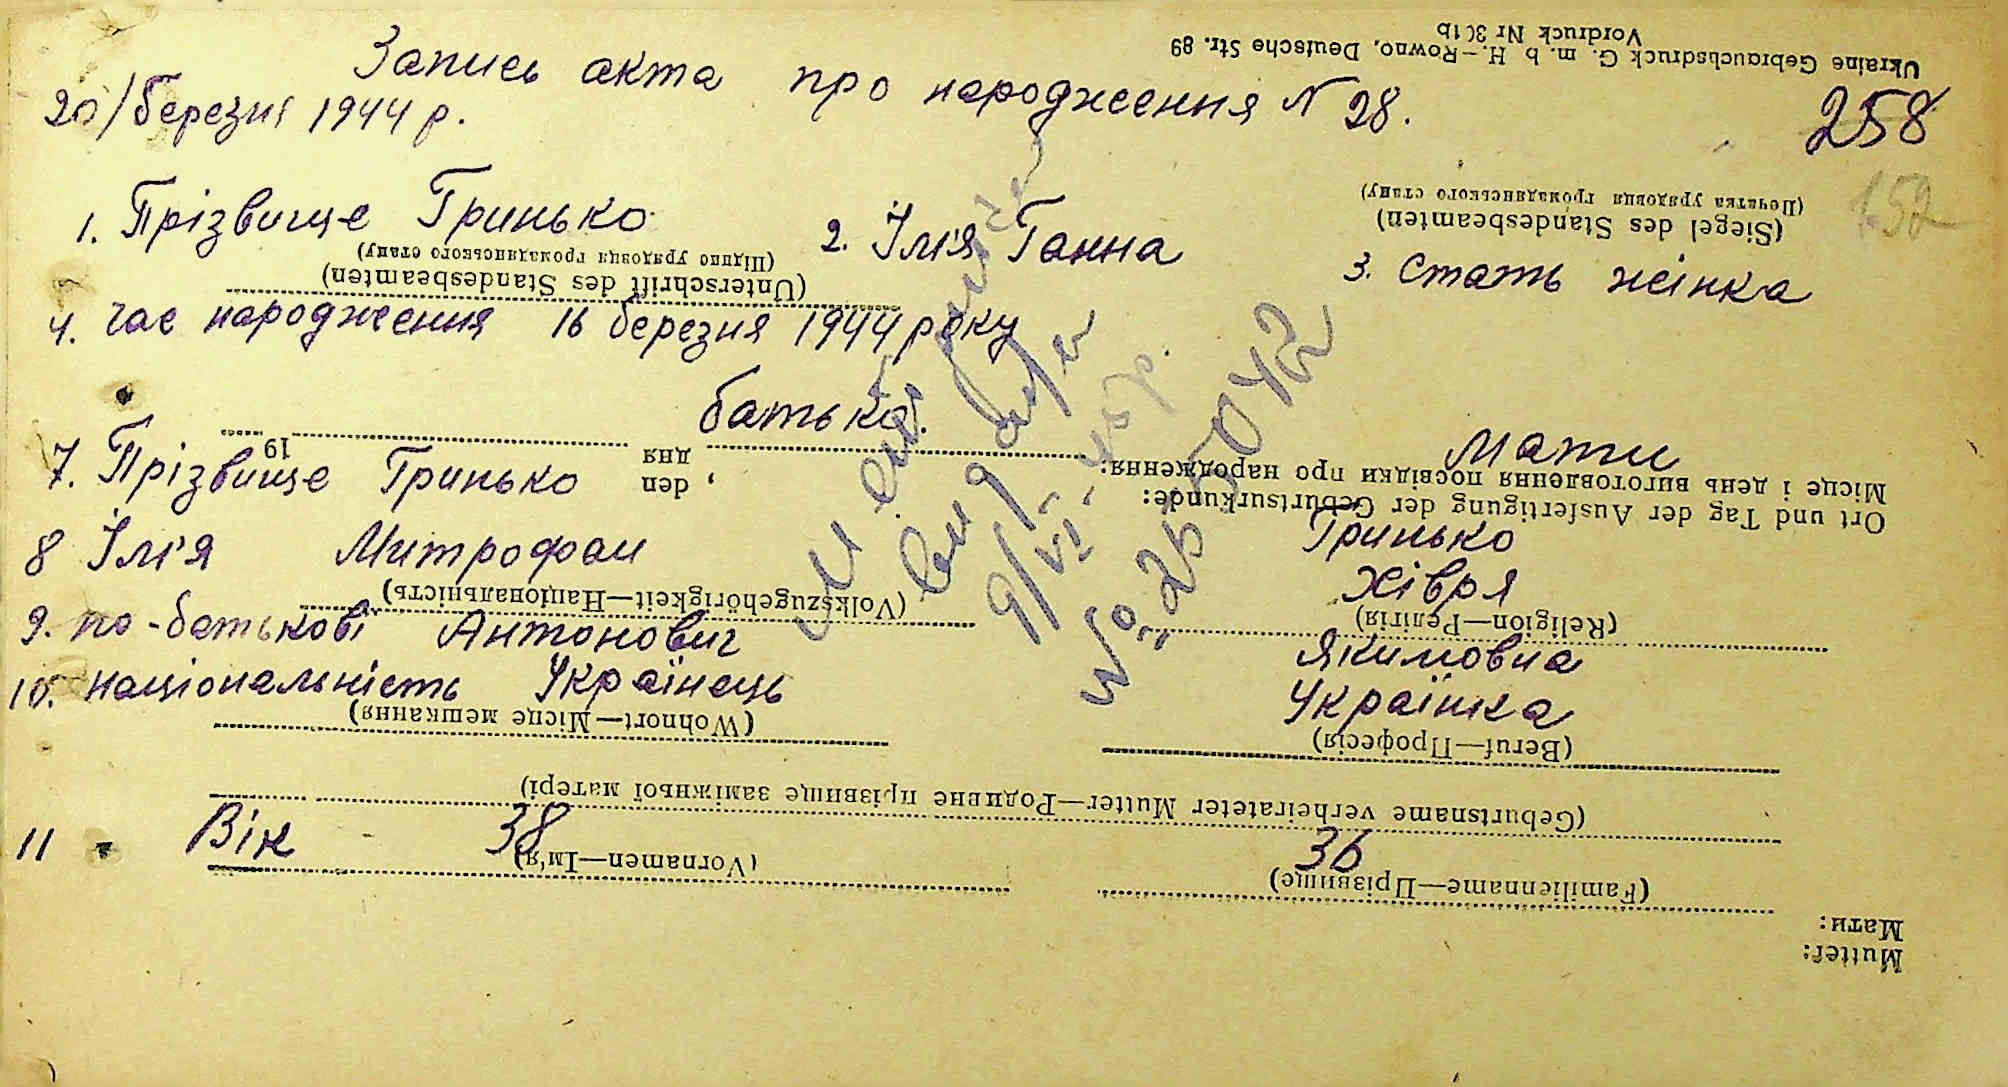 Запись акта про народження N 28.
20/березня 1944 р.
258
152
1. Прізвище Гринько 2. Ім'я Ганна 3. Стать жінка
4. час народження 16 березня 1944 року
батько. Мати
7. Прізвище Гринько Гринько
8 Ім'я Митрофан Хівря
9. по-батькові Антонович Якимовна
10. національність Українець Українка
11 Вік 38 36
видан
9/VI
No 25 5042
Mutter:
Мати:
(Familienname—Прізвище)
(Vornamen—Ім'я)
(Geburtsname verheirateter Mutter—Родинне прізвище заміжньої матері)
(Beruf—Професія)
(Wohnort—Місце мешкання)
(Religion—Релігія)
(Volkszugehörigkeit—Національність)
Ort und Tag der Ausfertigung der Geburtsurkunde:
Місце і день виготовлення посвідки про народження:
, den
дня
19
(Unterschrift des Standesbeamten)
(Підпис урядовця громадянського стану)
(Siegel des Standesbeamten)
(Печатка урядовця громадянського стану)
Vordruck Nr 301b
Ukraine Gebrauchsdruck G. m. b H.—Rowno, Deutsche Str. 89